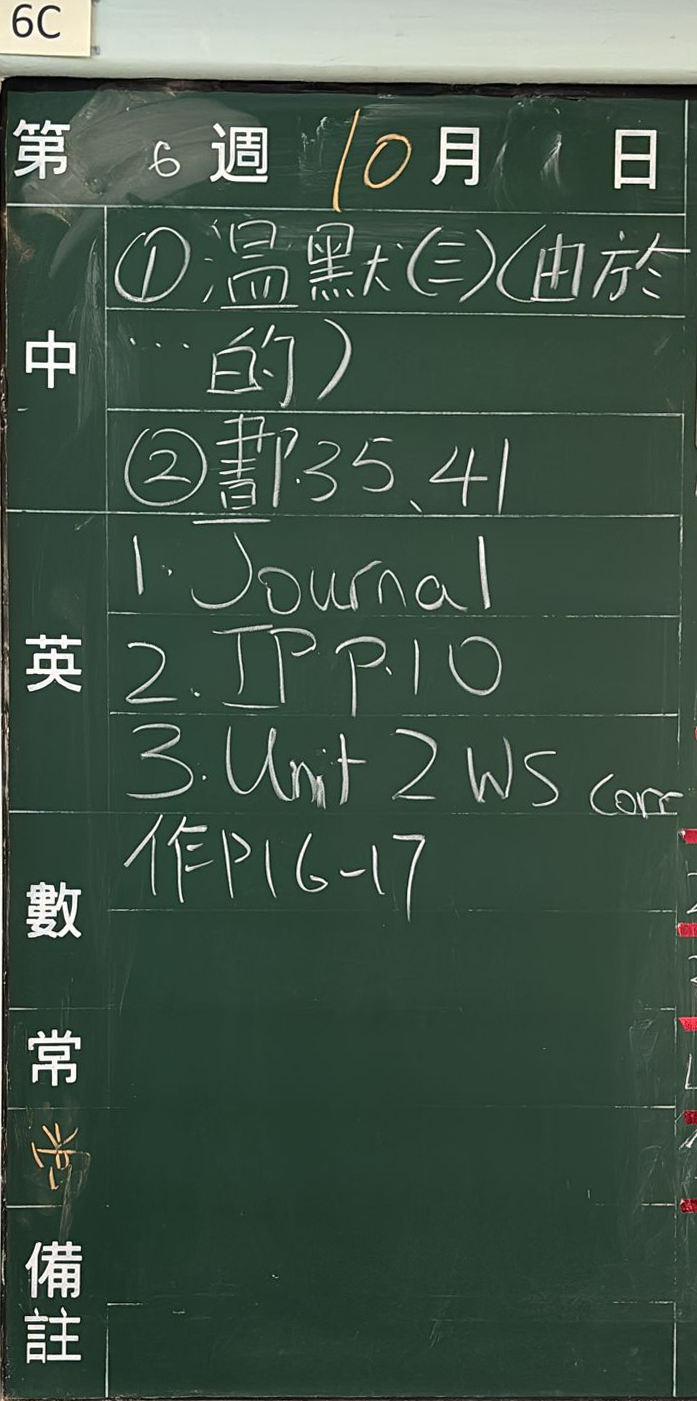 6C
第 6 週 10 月 1 日
中
①温默(三)(由於
…的)
②書P.35、41
英
1. Journal
2. IP P.10
3. Unit 2 WS corr
數
作P16-17
常
備註